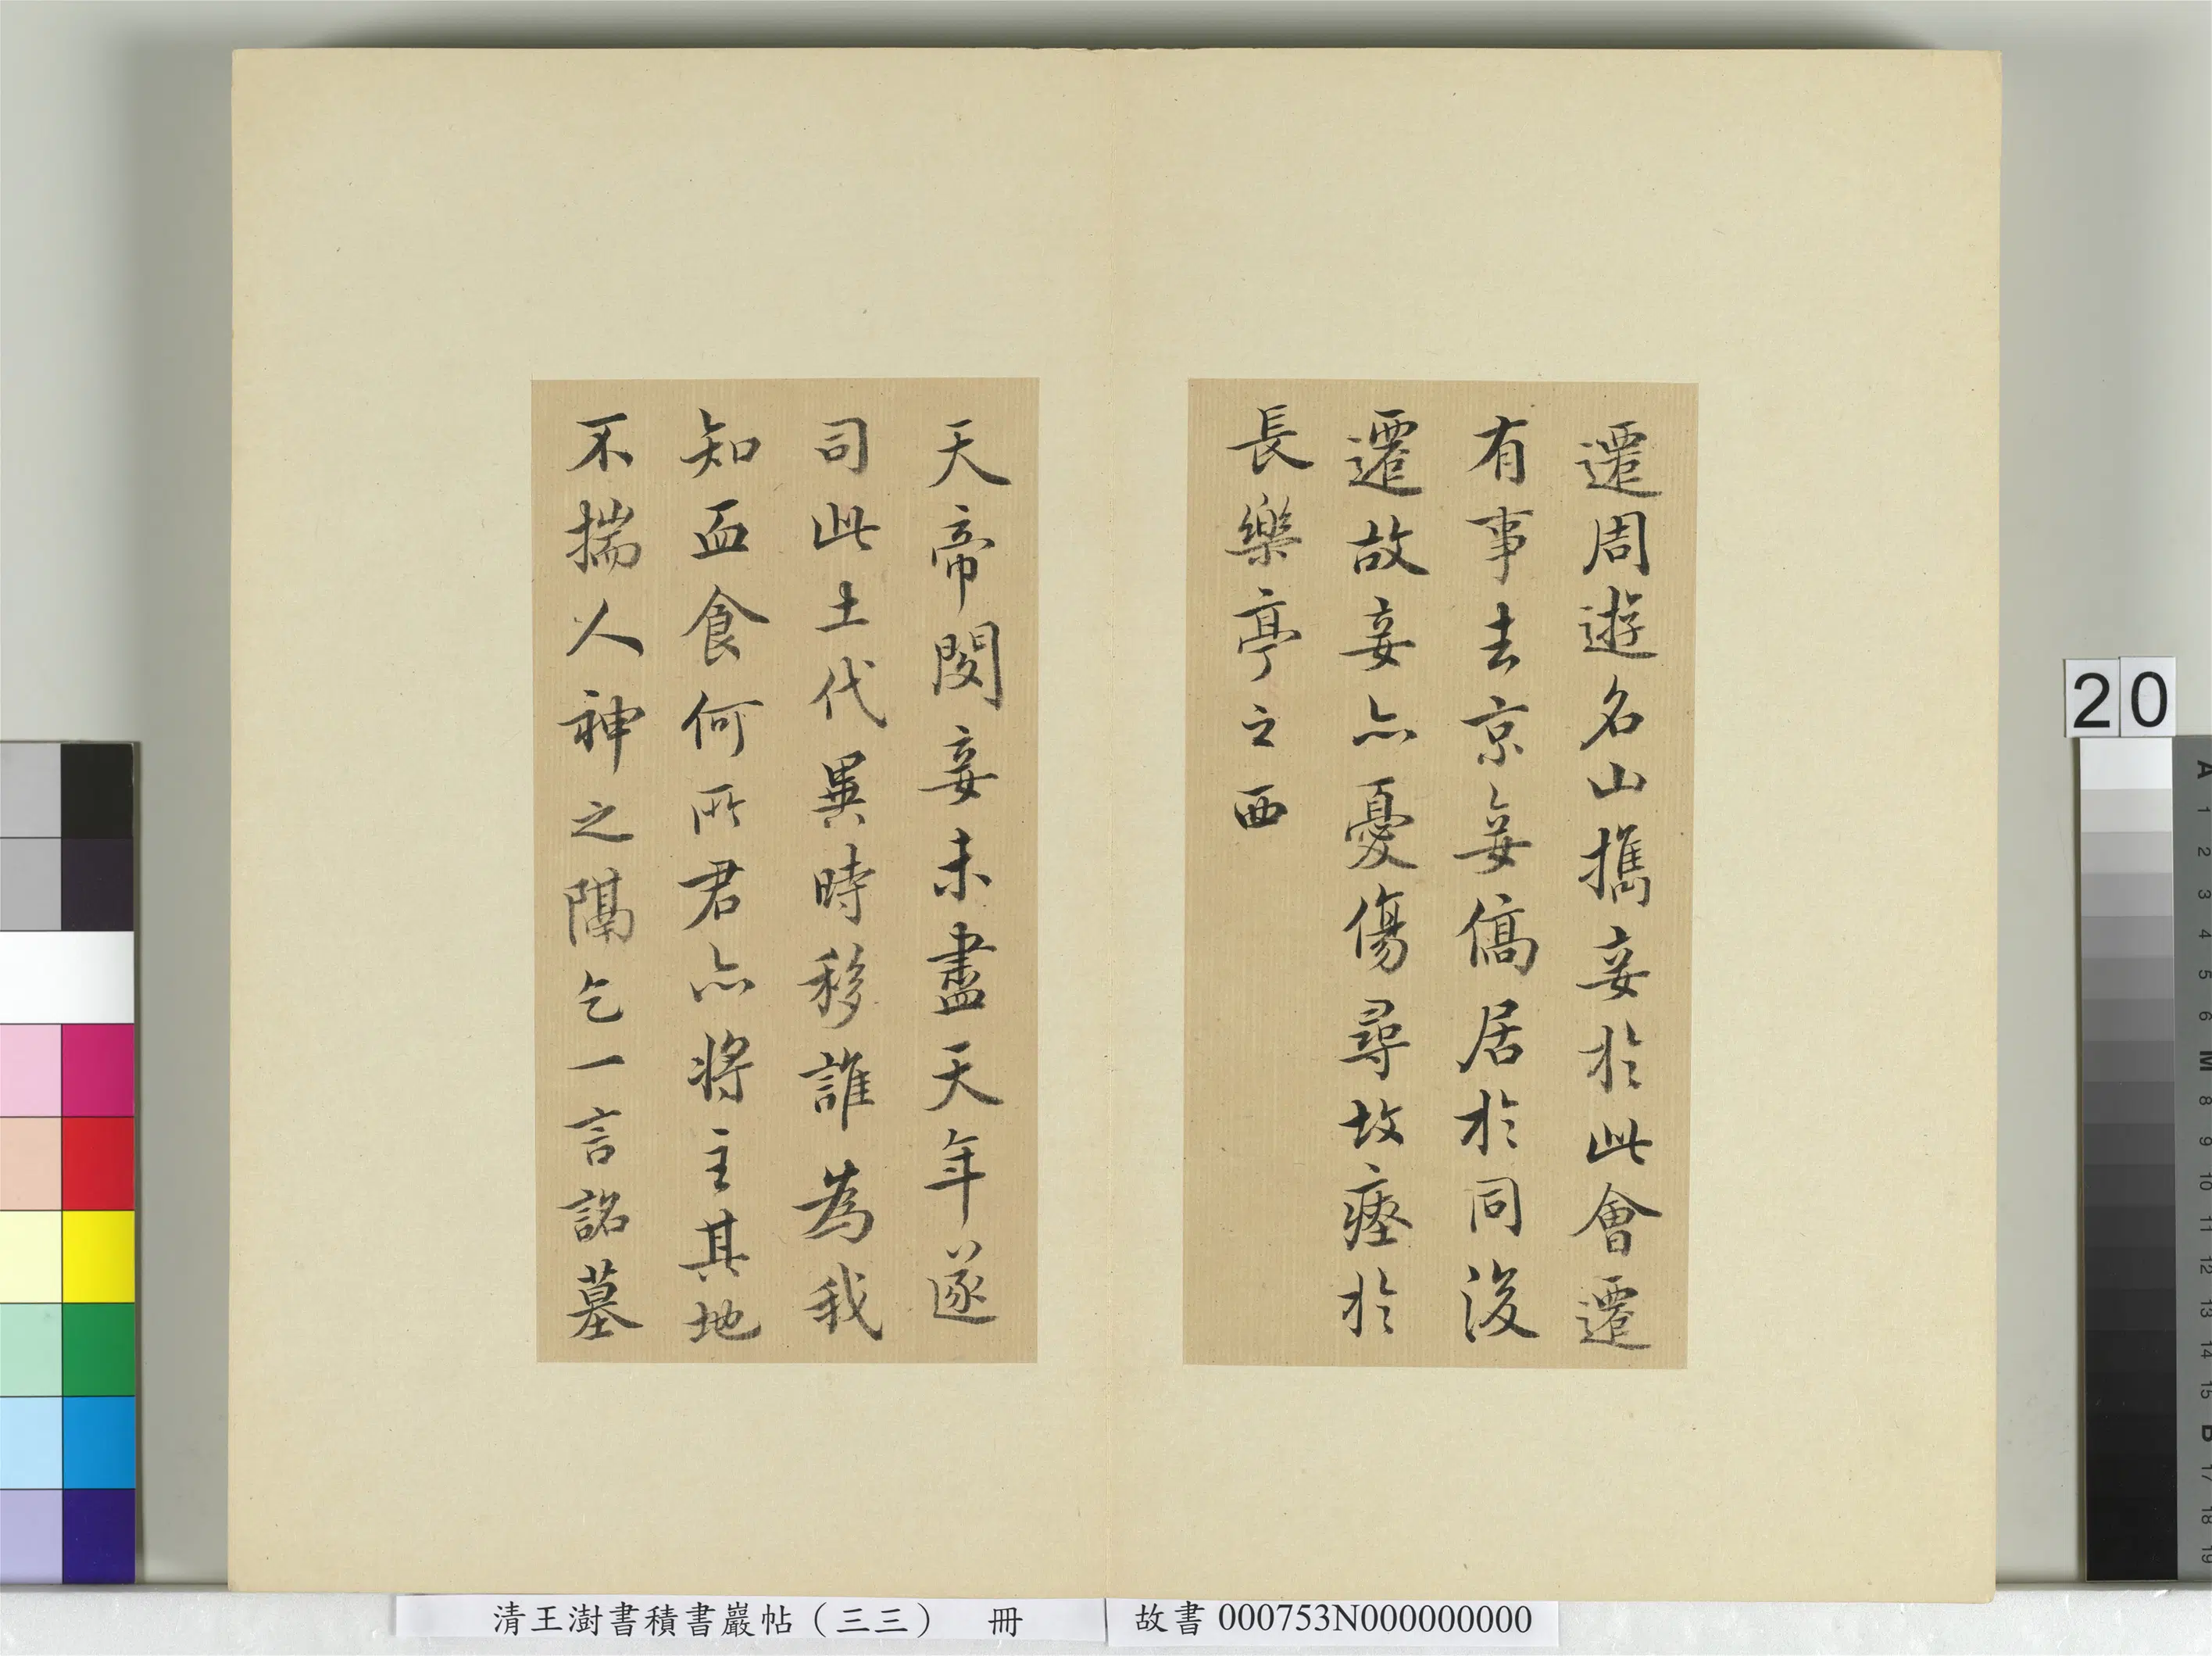 遷周遊名山攜妾於此會遷
有事去京妾僑居於同後
遷故妾亦憂傷尋故瘞於
長樂亭之西
天帝閔妾未盡天年遂
司此土代異時移誰為我
知血食何所君亦將主其地
不揣人神之隔乞一言銘墓
20
清王澍書積書巖帖(三三) 冊
故書000753N000000000
A 1 2 3 4 5 6 M 8 9 10 11 12 13 14 15 B 17 18 19